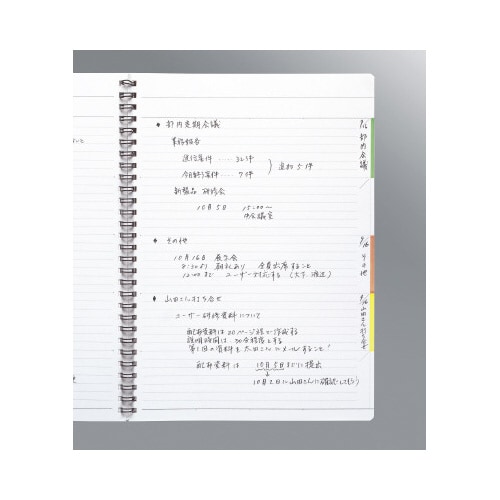 ◆ 部内定期会議
業務報告
進行案件 ‥‥ 32件
今日終了案件 ‥‥ 7件
追加 5件
新製品 研修会
10月5日 15:00〜
中会議室
◆ その他
10月16日 展示会
8:30より 朝礼あり 全員出席すること
12:00まで ユーザー対応する (大下、渡辺)
◆ 山田さん打ち合せ
ユーザー研修資料について
配布資料は 20ページ程で作成する
説明時間は 30分程度とする
第1回の資料を 太田さんにメールすること!
配布資料は 10月5日までに提出
10月2日に山田さんに確認してもらう
9/16 部内会議
9/16 その他
9/16 山田さん打ち合せ